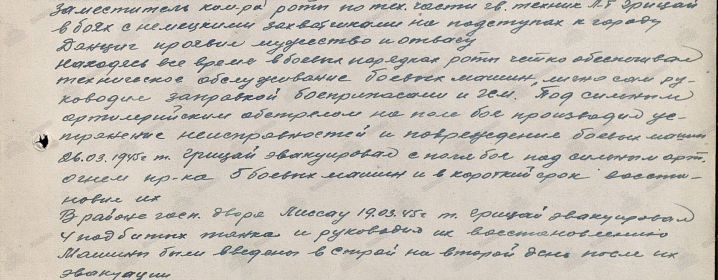 Заместитель ком-ра роты по тех. части гв. техник л-т Грицай
в боях с немецкими захватчиками на подступах к городу
Данциг проявил мужество и отвагу
Находясь все время в боевых порядках роты четко обеспечивал
техническое обслуживание боевых машин, лично сам ру-
ководил заправкой боеприпасами и гсм. Под сильным
артиллерийским обстрелом на поле боя производил ус-
транение неисправностей и повреждение боевых машин
26.03.1945г т. Грицай эвакуировал с поле боя под сильным арт.
огнем пр-ка 5 боевых машин и в короткий срок восста-
новил их
В районе госп. двора Лиссау 19.03.45г т. Грицай эвакуировал
4 подбитых танка и руководил их восстановлению
Машины были введены в строй на второй день после их
эвакуации